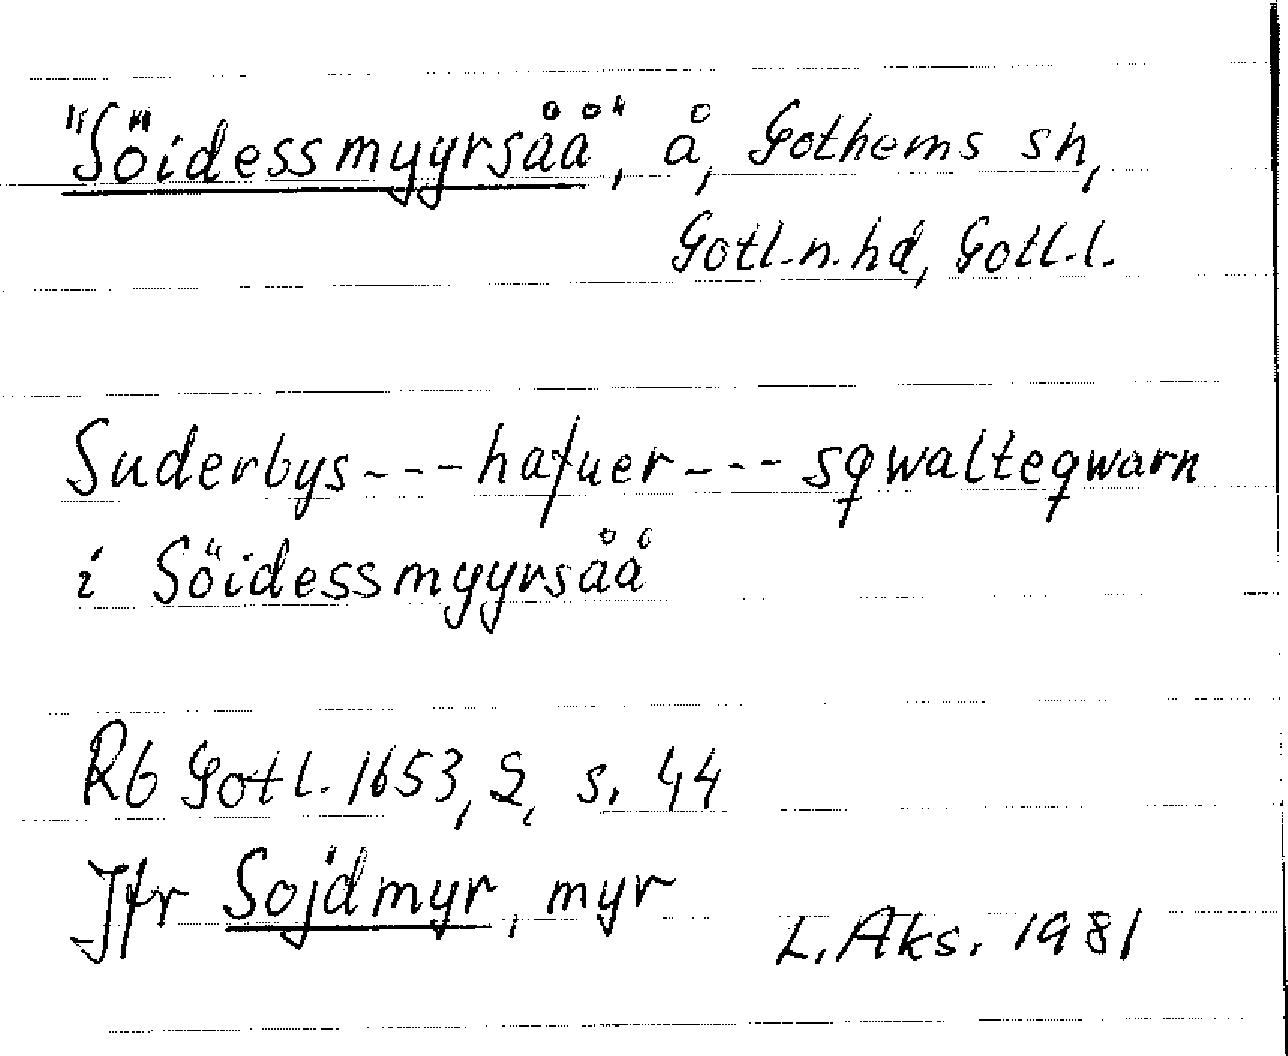 "Söidessmyyrsåå", å, Gothems sn,
Gotl.n.hd, Gotl.l.
Suderbys---hafuer---sqwalteqwarn
i Söidessmyyrsåå
Rb Gotl. 1653, 2, s. 44
Jfr Sojdmyr, myr
L. Aks. 1981